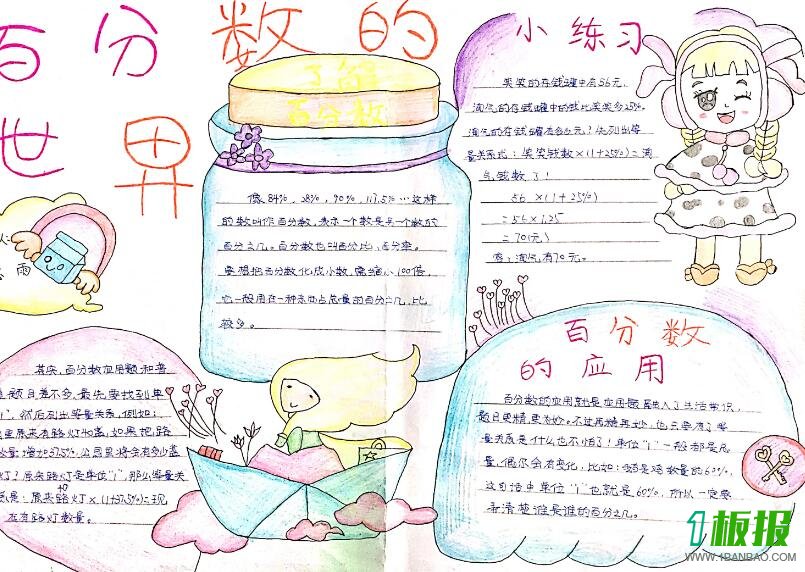 百分数的
世界
了解
百分数
像84%，28%，90%，117.5%…这样
的数叫作百分数，表示一个数是另一个数的
百分之几。百分数也叫百分比、百分率。
要想把百分数化成小数，需缩小100倍，
也一般用在一种东西占总量的百分之几，比
较多。
小练习
笑笑的存钱罐中有56元，
淘气的存钱罐中的钱比笑笑多25%。
淘气的存钱罐有多少元？先列出等
量关系式：笑笑钱数×(1+25%)=淘
气钱数了！
56×(1+25%)
=56×1.25
=70(元)
答：淘气有70元。
雨
其实，百分数应用题和普
题目差不多，最先要找到单
"1"，然后列出等量关系，例如：
原来有路灯40盏，如果把路
增加37.5%，公园里将会有多少盏
灯？原来路灯是单位"1"，那么等量关
系是：原来路灯×(1+37.5%)=现
在有路灯数量。
百分数
的应用
百分数的应用就是应用题融入了生活常识，
题目更精，更妙。不过再精再妙，也只要有了等
量关系是什么，也不怕了！单位"1"一般都是总
量，偶尔会有变化，比如：鹅是鸡数量的60%，
这句话中单位"1"也就是60%，所以一定要
弄清楚谁是谁的百分之几。
1板报
WWW.1BANBAO.COM